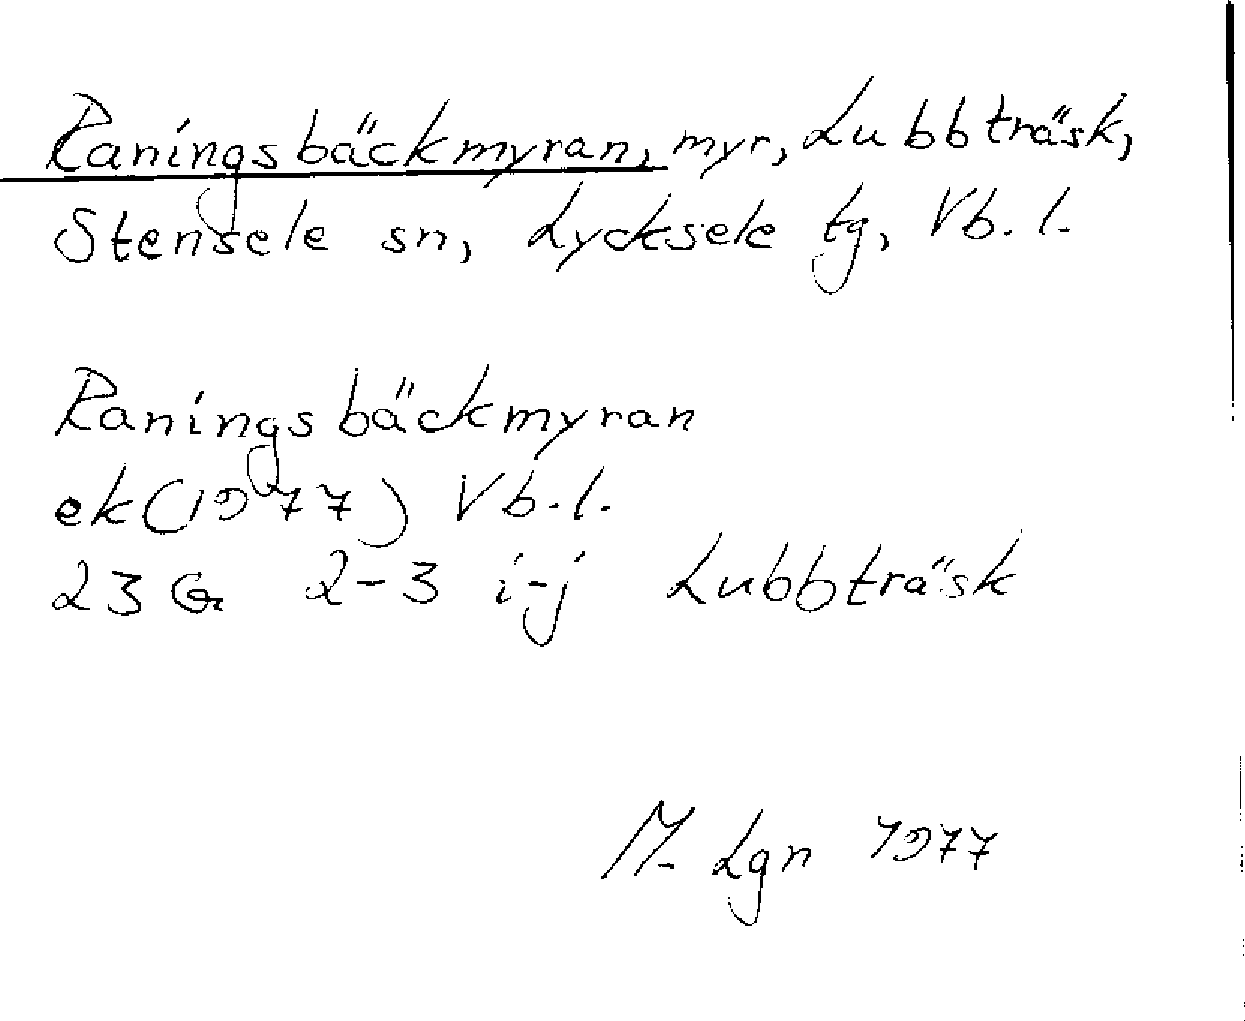 Raningsbäckmyran, myr, Lubbträsk,
Stensele sn, Lycksele tg, Vb. l.
Raningsbäckmyran
ek (1977) Vb. l.
23 G 2-3 i-j Lubbträsk
M. Lgn 1977